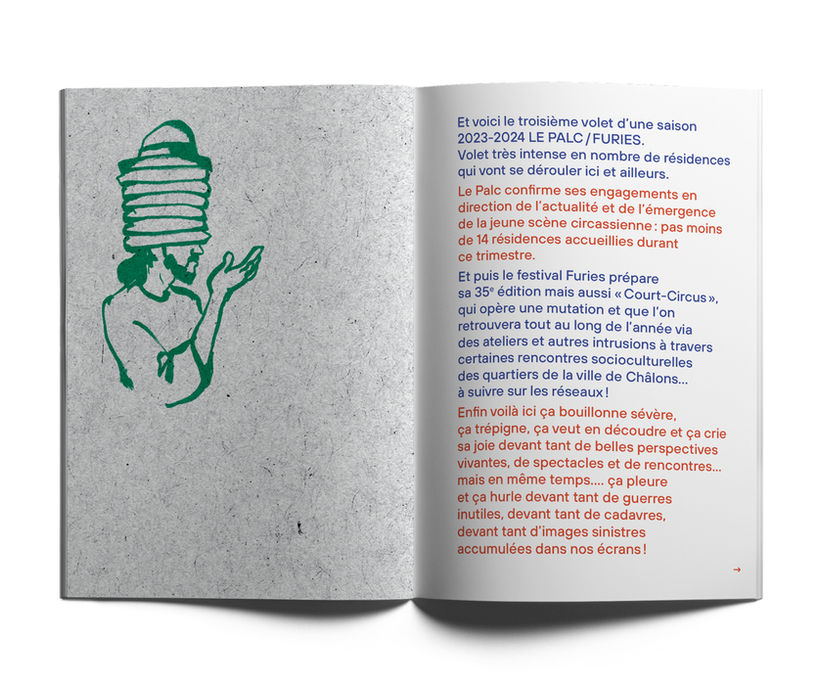 Et voici le troisième volet d'une saison
2023-2024 LE PALC / FURIES.
Volet très intense en nombre de résidences
qui vont se dérouler ici et ailleurs.
Le Palc confirme ses engagements en
direction de l'actualité et de l'émergence
de la jeune scène circassienne : pas moins
de 14 résidences accueillies durant
ce trimestre.
Et puis le festival Furies prépare
sa 35e édition mais aussi « Court-Circus »,
qui opère une mutation et que l'on
retrouvera tout au long de l'année via
des ateliers et autres intrusions à travers
certaines rencontres socioculturelles
des quartiers de la ville de Châlons...
à suivre sur les réseaux !
Enfin voilà ici ça bouillonne sévère,
ça trépigne, ça veut en découdre et ça crie
sa joie devant tant de belles perspectives
vivantes, de spectacles et de rencontres...
mais en même temps.... ça pleure
et ça hurle devant tant de guerres
inutiles, devant tant de cadavres,
devant tant d'images sinistres
accumulées dans nos écrans !
→